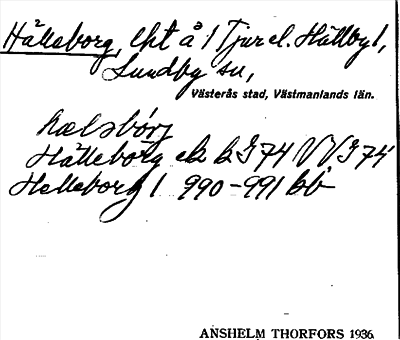 Hälleborg, lht å 1 Tjurel. Hällby 1,
Lundby sn,
Västerås stad, Västmanlands län.
hælsbórj
Hälleborg ek bI 74 VVI 74
Helleborg 1 990-991 bb
ANSHELM THORFORS 1936